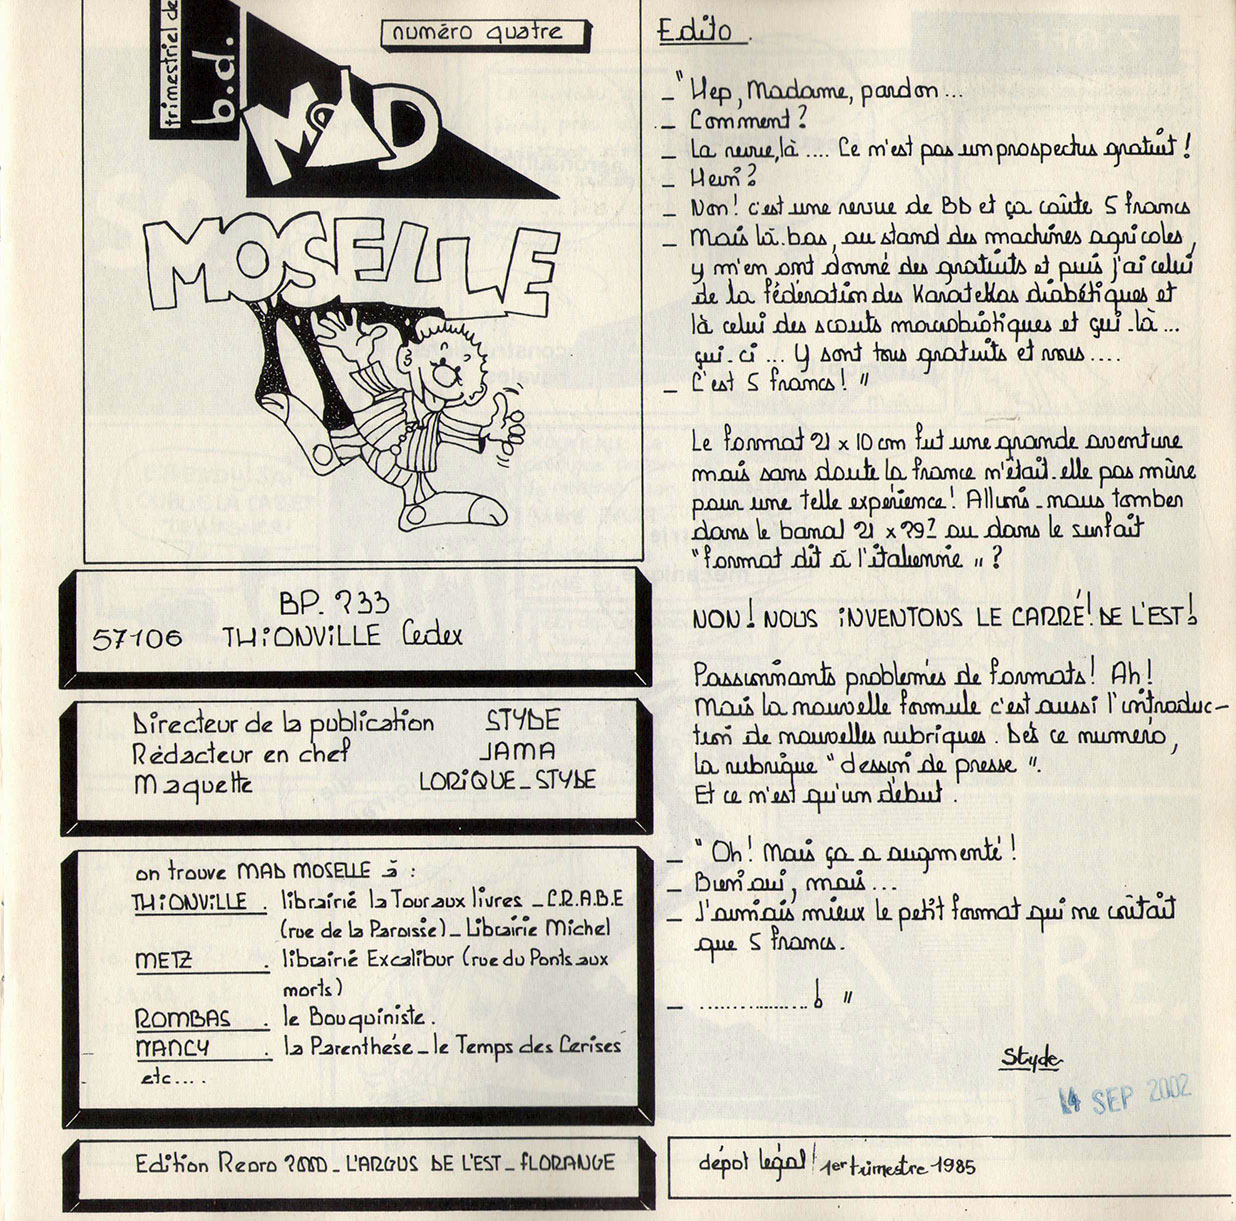 trimestriel de
b.d.
numéro quatre
MAD
MOSELLE
BP. 233
57106 THIONVILLE Cedex
Directeur de la publication STYDE
Rédacteur en chef JAMA
Maquette LORIQUE_STYDE
on trouve MAD MOSELLE à :
THIONVILLE . librairié la Tour aux livres _ C.R.A.B.E
(rue de la Paroisse)_ Librairie Michel
METZ . librairié Excalibur (rue du Ponts aux
morts)
ROMBAS . le Bouquiniste.
NANCY . la Parenthése _ le Temps des Cerises
etc....
Edition Repro 2000_ L'ARGUS DE L'EST_ FLORANGE
Edito.
_ "Hep, Madame, pardon...
_ Comment?
_ La revue, là .... Ce n'est pas un prospectus gratuit!
_ Hein?
_ Non! c'est une revue de Bd et ça coûte 5 francs
_ Mais là-bas, au stand des machines agricoles,
y m'en ont donné des gratuits et puis j'ai celui
de la fédération des Karatekas diabétiques et
là celui des scouts macrobiotiques et çui-là ...
çui-ci ... Y sont tous gratuits et vous ....
_ C'est 5 francs! "
Le format 21 x 10 cm fut une grande aventure
mais sans doute la france n'était-elle pas mûre
pour une telle expérience! Allions-nous tomber
dans le banal 21 x 29? ou dans le surfait
"format dit à l'italienne "?
NON! NOUS INVENTONS LE CARRÉ! DE L'EST!
Passionnants problèmes de formats! Ah!
Mais la nouvelle formule c'est aussi l'introduc-
tion de nouvelles rubriques. Dès ce numéro,
la rubrique "dessin de presse ".
Et ce n'est qu'un début.
_ "Oh! Mais ça a augmenté!
_ Bien oui, mais...
_ J'aimais mieux le petit format qui ne coûtait
que 5 francs.
_ ..................! "
Styde
14 SEP 2002
dépot légal / 1er trimestre 1985